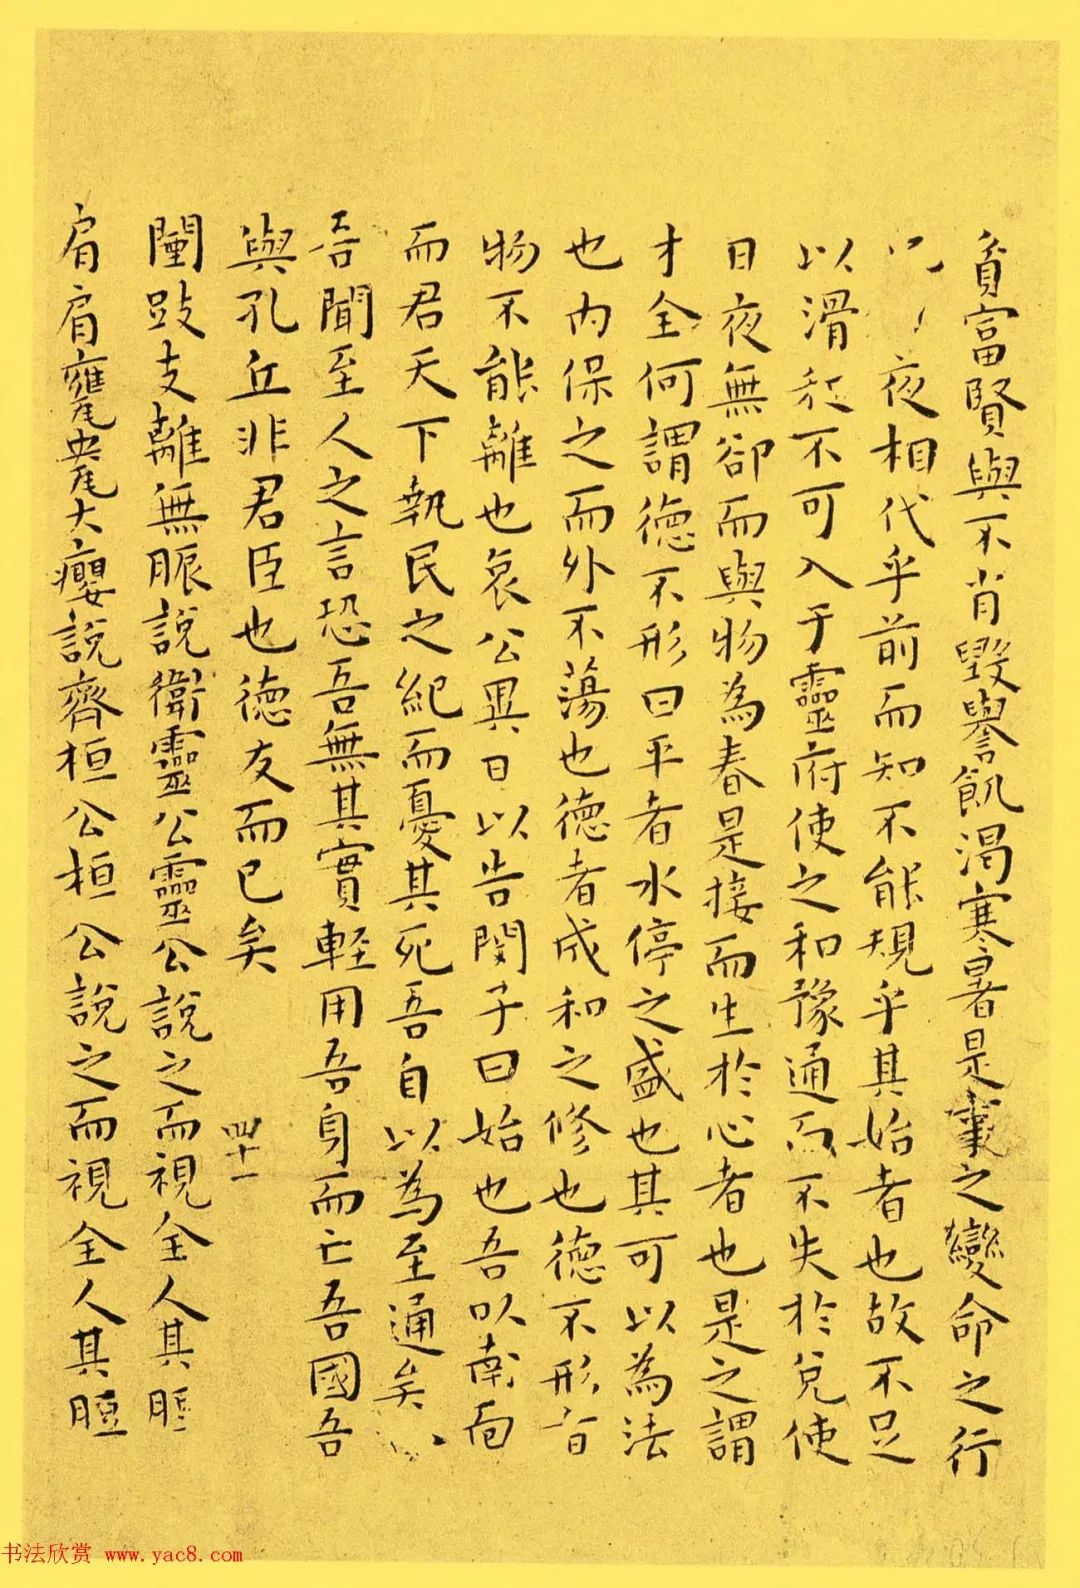 貧富賢與不肖毀譽飢渴寒暑是事之變命之行
夜相代乎前而知不能規乎其始者也故不足
以滑和不可入于靈府使之和豫通而不失於兌使
日夜無郤而與物為春是接而生於心者也是之謂
才全何謂德不形曰平者水停之盛也其可以為法
也內保之而外不蕩也德者成和之修也德不形者
物不能離也哀公異日以告閔子曰始也吾以南面
而君天下執民之紀而憂其死吾自以為至通矣
吾聞至人之言恐吾無其實輕用吾身而亡吾國吾
與孔丘非君臣也德友而已矣
四十一
闉跂支離無脤說衛靈公靈公說之而視全人其脰
肩肩甕㼜大癭說齊桓公桓公說之而視全人其脰
书法欣赏 www.yac8.com